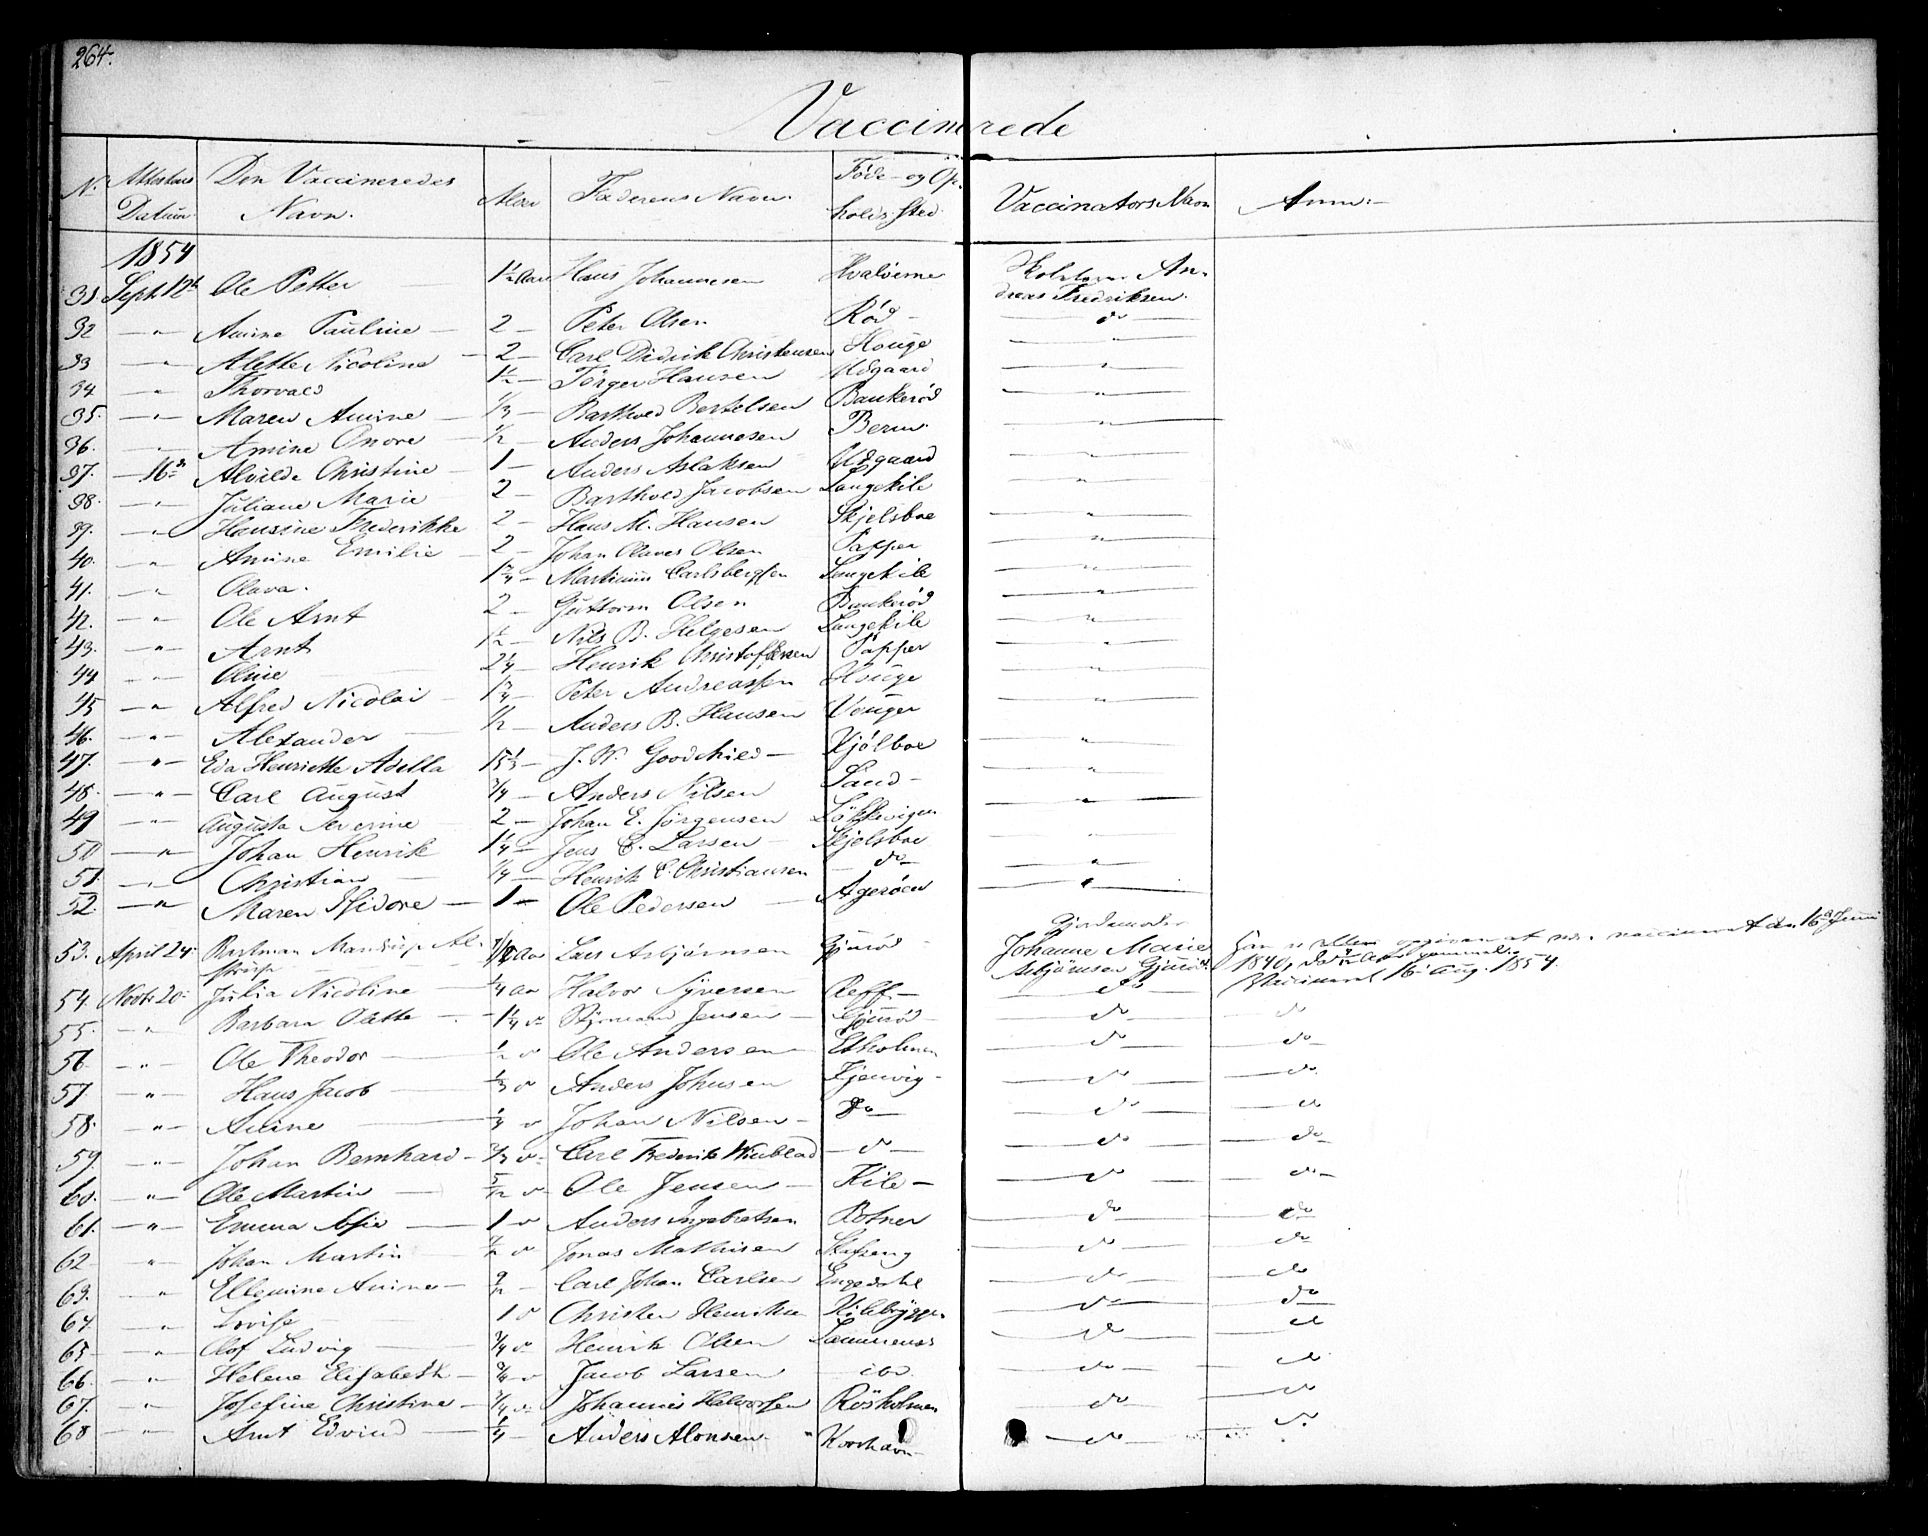 264.
Vaccinerede
N. Attestens Datum Den Vaccineredes Navn. Alder Faderens Navn. Føde- og Op- holds Sted Vaccinators Navn Anm:
1854
31. Sept. 12te Ole Petter 1½ Aar Hans Johannesen Hvaløerne Andreas Fredriksen.
32 — " — Amine Pauline — 2 — Peter Olsen Rød — do
33 — " — Alette Nicoline — 2 — Carl Didrik Christensen Houge "
34 — " — Thorvald 1½ — Törger Hansen Udgaard "
35. — " — Maren Amine — 1/3 — Barthold Bertelsen Bankerød "
36. — " — Amine Onore — ½ — Anders Johannesen "
37. — 16de Alvilde Christine — 1 — Anders Aslaksen Udgaard "
38. — " — Juliane Marie 2 — Barthold Jacobsen Langekile "
39. — " — Hansine Frederikke 2 — Hans M. Hansen Skjelsboe "
40. — " — Amine Emilie — 2 — Johan Olaves Olsen Papper "
41. — " — Olava. 1¾ — Martinius Carlsbergsen Langekile "
42. — " — Ole Arnt 2 — Guttorm Olsen Bankerød "
43. — " — Arnt 1½ — Nils B. Helgesen Langekile "
44 — " — Oline 2¼ — Henrik Christoffersen Papper "
45 — " — Alfred Nicolai — 1¾ — Peter Andreassen Houge "
46. — " — Alexander — ½ — Anders B. Hansen Vouger "
47. — " — Eda Henriette Adella 15⅓ — J. W. Goodchild — Kjølboe "
48. — " — Carl August ¾ — Anders Nilsen Sand — "
49 — " — Augusta Severine 2 — Johan E. Jörgensen Løkkevigen "
50 — " — Johan Henrik 1¼ — Jens C. Larsen — Skjelsboe "
51. — " — Christian — ¼ — Henrik C. Christiansen — do — "
52. — " — Maren Isidore — 1 — Ole Pedersen — Agerøen "
53. April 24. Mandrup Al- strup Aar Lars Asbjørnsen Gjurød Gjordemoder Johanne Marie Asbjørnsen Gjurød. vaccineret den 16de Juni
1840,
Vaccineret 16. Aug. 1854.
54. Novbr. 20. Julia Nicoline — ¼ Aar Halvor Syversen Reff — do
55. — " — Barbara Olette — 1¼ do Jensen — Gjurød — do do
56. — " — Ole Theodor — ½ do Ole Andersen Ekholmen do do
57. — " — Hans Jacob — ⅓ do Anders Johnsen Kjenvig — do do
58. — " — Amine — ¼ do Johan Nilsen — do — do do
59 — " — Johan Bernhard — ⅔ do Carl Frederik Wiublad — do — do do
60. — " — Ole Martin — 5/12 do Ole Jensen — Kile — do do
61. — " — Emma Sofie — 1 do Anders Ingebretsen Botner do do
62 — " — Johan Martin — do Jonas Mathisen do do
63. — " — Ellemine Amine — Carl Johan Carlsen Engedahl do do
64 — " — Lovise — 1 do Christen Henriksen Kilebryggen do do
65 — " — Olof Ludvig — ¾ do Henrik Olsen do do
66. — " — Helene Elisabeth — ¾ do Jacob Larsen — ibd. do do
67. — " — Josefine Christine — ¾ do Johannes Halvorsen Rösholmen do do
68 — " — Arnt Edvind — ¼ — Anders Alonsen — Korshavn — do do